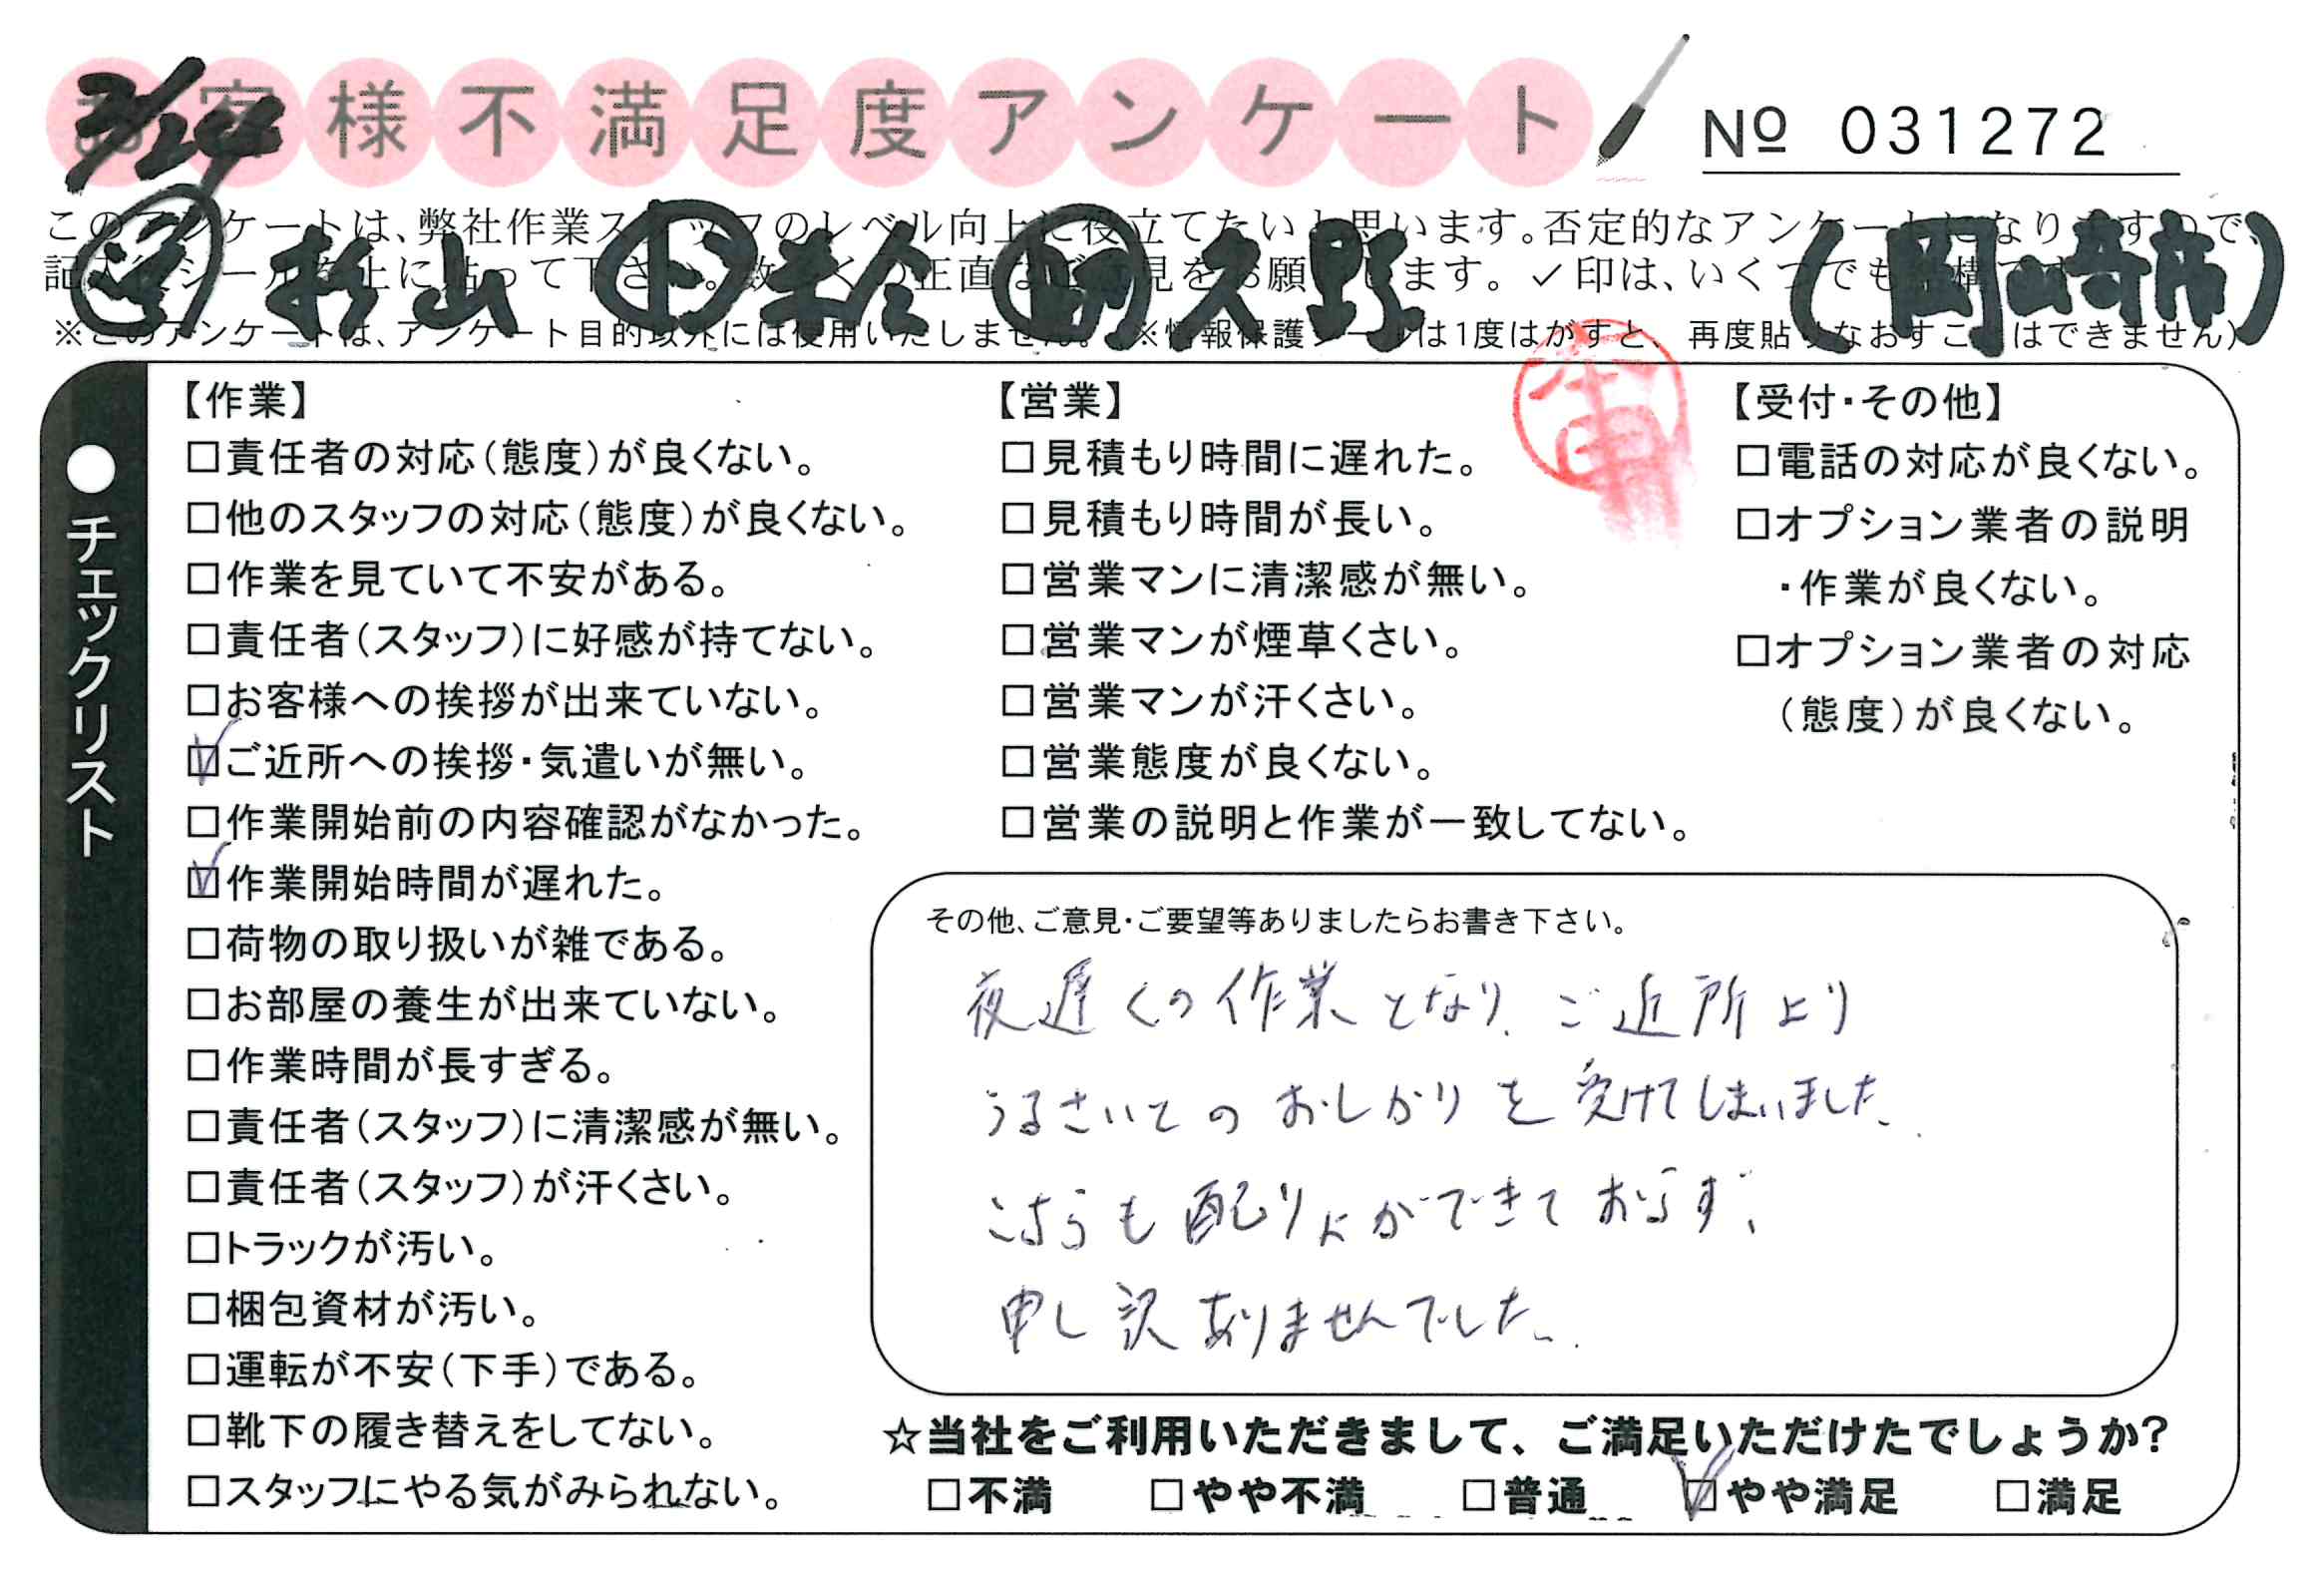 お客様不満足度アンケート
No 031272
3/24
このアンケートは、弊社作業スタッフのレベル向上に役立てたいと思います。否定的なアンケートになりますので、
杉山 久野 (岡崎市)
記入後シールを上に貼って下さい。数多くの正直なご意見をお願いします。✓印は、いくつでも結構です。
※このアンケートは、アンケート目的以外には使用いたしません。(※情報保護シールは1度はがすと、再度貼りなおすことはできません)
●チェックリスト
【作業】
□責任者の対応(態度)が良くない。
□他のスタッフの対応(態度)が良くない。
□作業を見ていて不安がある。
□責任者(スタッフ)に好感が持てない。
□お客様への挨拶が出来ていない。
☑ご近所への挨拶・気遣いが無い。
□作業開始前の内容確認がなかった。
☑作業開始時間が遅れた。
□荷物の取り扱いが雑である。
□お部屋の養生が出来ていない。
□作業時間が長すぎる。
□責任者(スタッフ)に清潔感が無い。
□責任者(スタッフ)が汗くさい。
□トラックが汚い。
□梱包資材が汚い。
□運転が不安(下手)である。
□靴下の履き替えをしてない。
□スタッフにやる気がみられない。
【営業】
□見積もり時間に遅れた。
□見積もり時間が長い。
□営業マンに清潔感が無い。
□営業マンが煙草くさい。
□営業マンが汗くさい。
□営業態度が良くない。
□営業の説明と作業が一致してない。
【受付・その他】
□電話の対応が良くない。
□オプション業者の説明
・作業が良くない。
□オプション業者の対応
(態度)が良くない。
その他、ご意見・ご要望等ありましたらお書き下さい。
夜遅くの作業となり、ご近所より
うるさいとのおしかりを受けてしまいました。
こちらも配りょができておらず、
申し訳ありませんでした。
☆当社をご利用いただきまして、ご満足いただけたでしょうか?
□不満 □やや不満 □普通 ☑やや満足 □満足